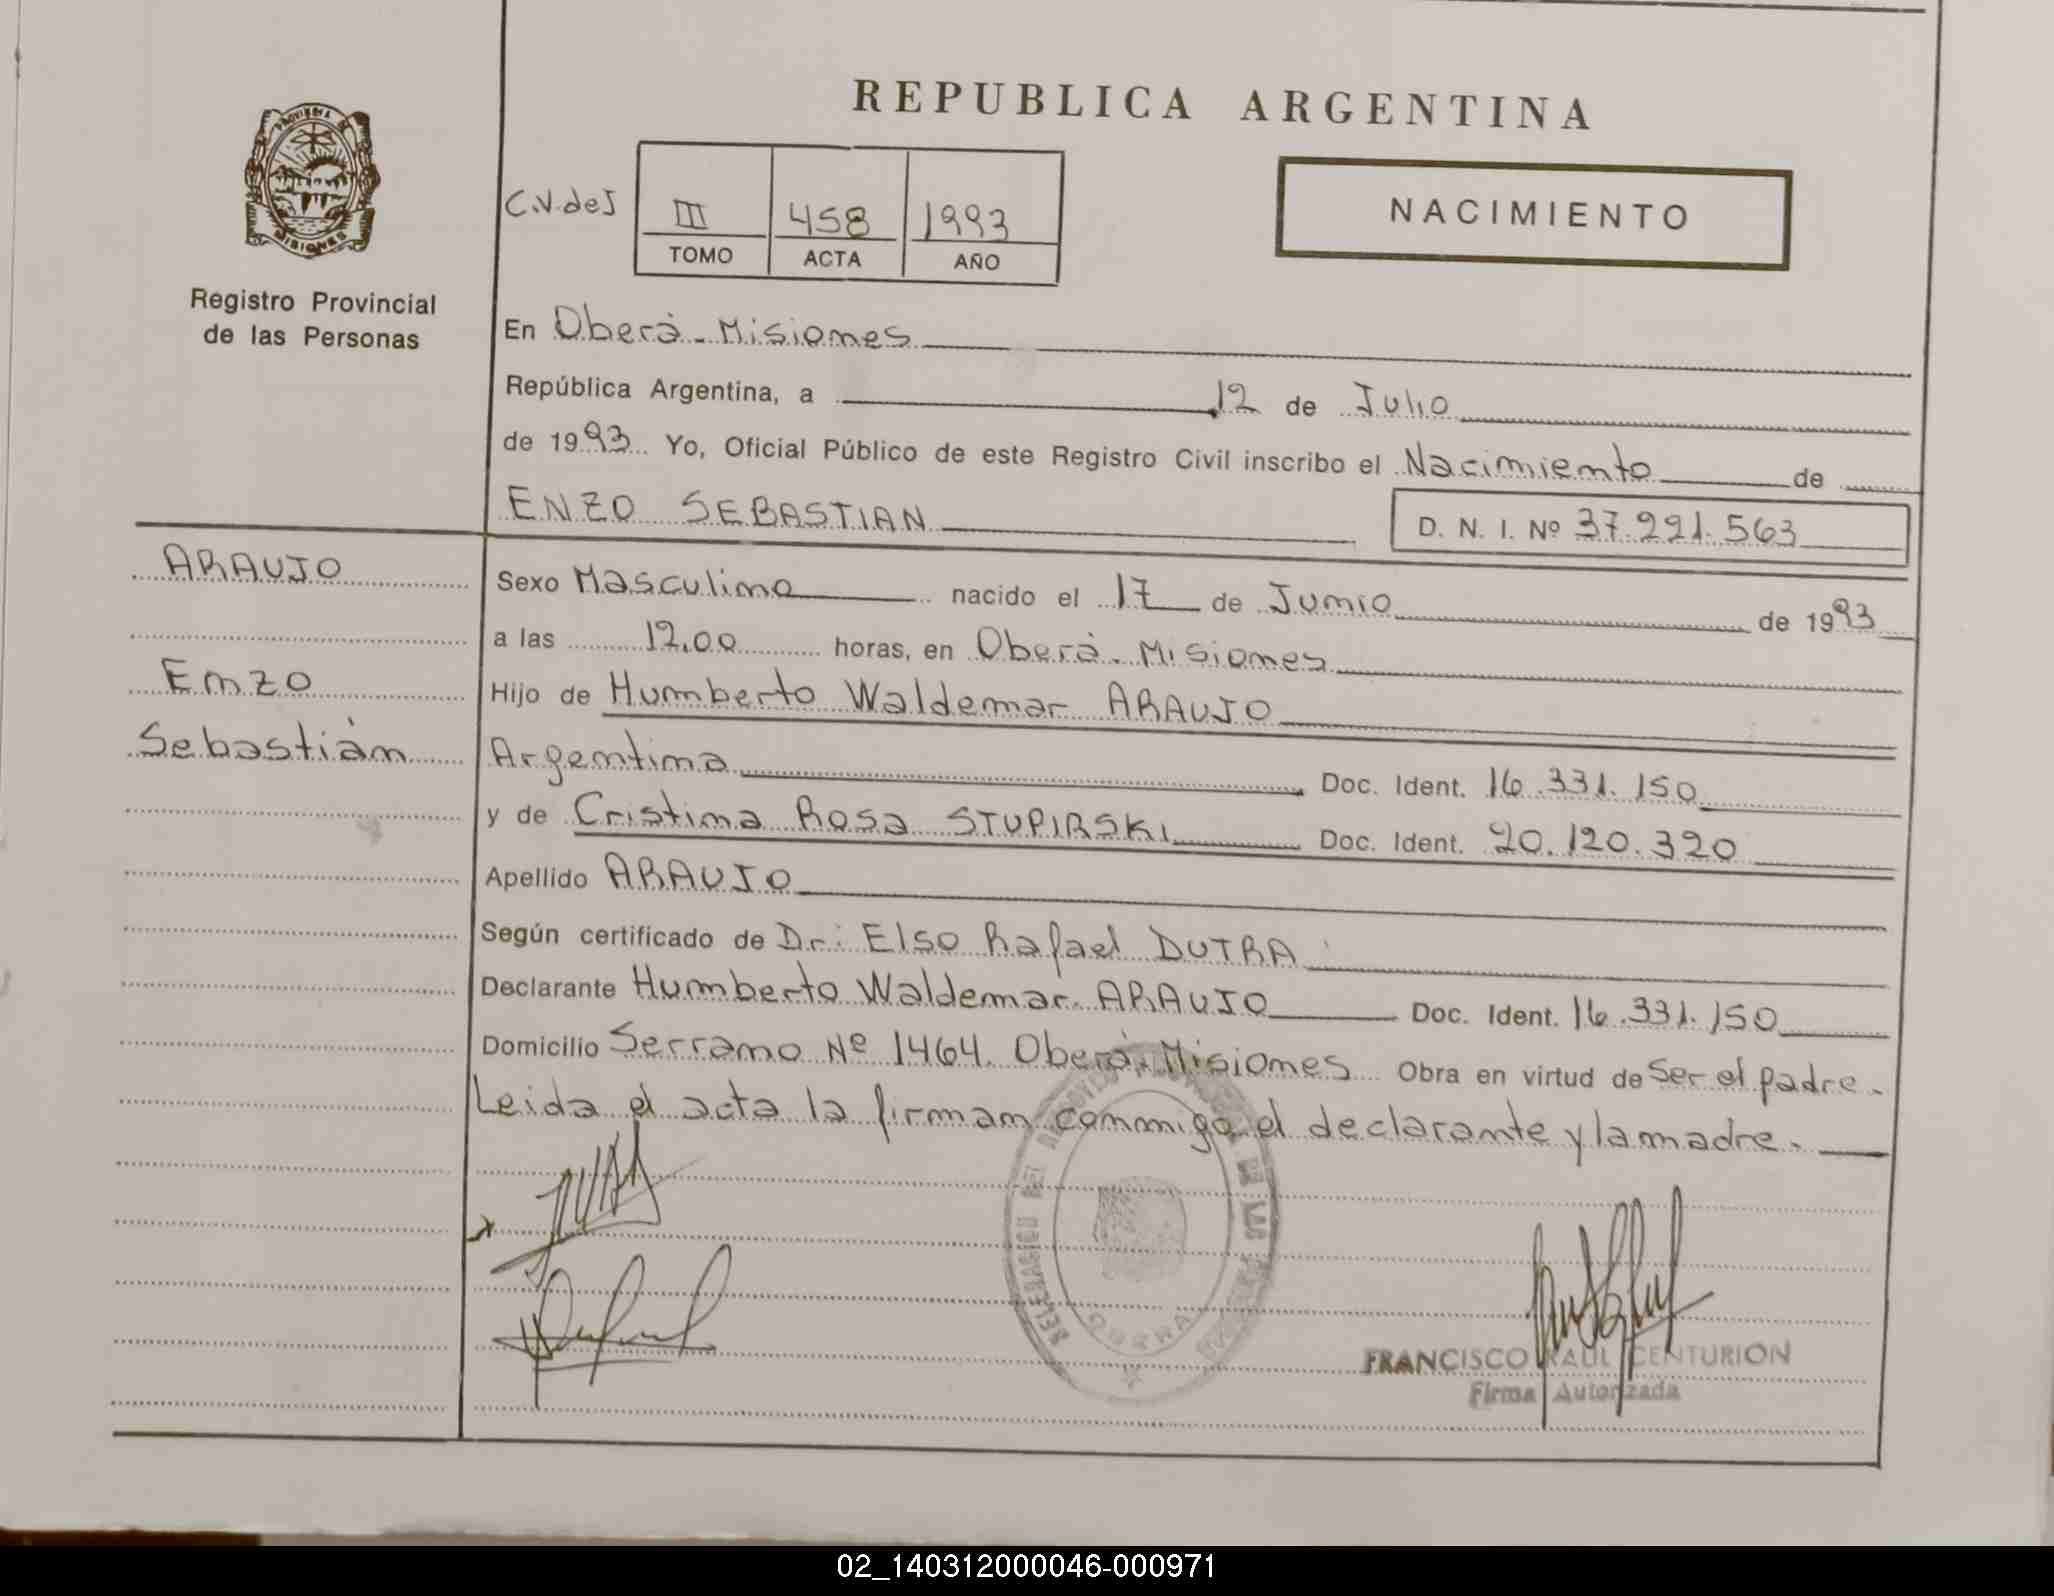 REPUBLICA ARGENTINA
PROVINCIA DE
MISIONES
Registro Provincial
de las Personas
C.V.deJ
III 458 1993
TOMO ACTA AÑO
NACIMIENTO
En Oberá - Misiones
República Argentina, a 12 de Julio
de 1993 Yo, Oficial Público de este Registro Civil inscribo el Nacimiento de
ENZO SEBASTIAN D. N. I. Nº 37.221.563
ARAUJO
Enzo
Sebastián
Sexo Masculino nacido el 17 de Junio de 1993
a las 12,00 horas, en Oberá - Misiones
Hijo de Humberto Waldemar ARAUJO
Argentina Doc. Ident. 16.331.150
y de Cristina Rosa STUPIRSKI Doc. Ident. 20.120.320
Apellido ARAUJO
Según certificado de Dr: Elso Rafael DUTRA
Declarante Humberto Waldemar ARAUJO Doc. Ident. 16.331.150
Domicilio Serrano Nº 1464. Oberá. Misiones Obra en virtud de Ser el padre.
Leida el acta la firman conmigo el declarante y la madre.
DE LAS
OBERA
FRANCISCO RAUL CENTURION
Firma Autorizada
02_140312000046-000971